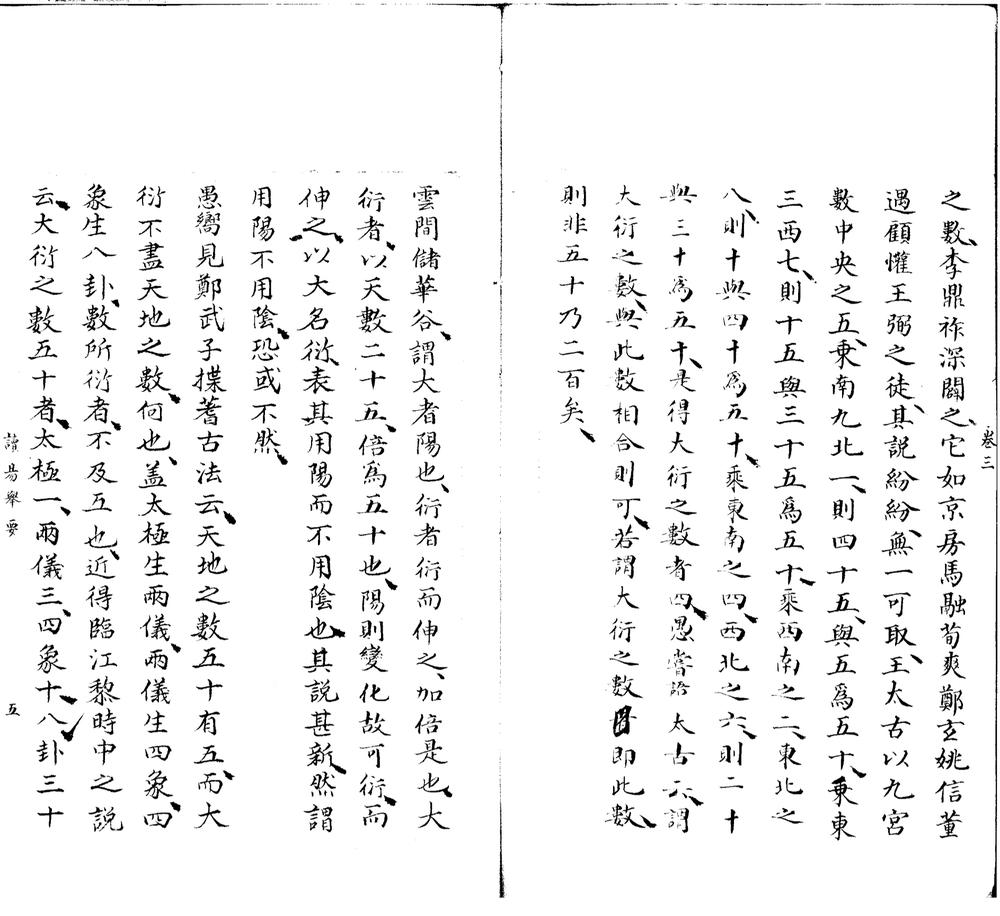 之數李鼎祚深闢之它如京房馬融荀爽鄭玄姚信董
遇顧懽王弼之徒其說紛紛無一可取王太古以九宮
數中央之五乗南九北一則四十五與五爲五十乗東
三西七則十五與三十五爲五十乘西南之二東北之
八則十與四十爲五十乘東南之四西北之六則二十
與三十爲五十是得大衍之數者四愚嘗語太古六謂
大衍之數與此數相合則可若謂大衍之數即此數
則非五十乃二百矣
卷三
雲間儲華谷謂大者陽也衍者衍而伸之加倍是也大
衍者以天數二十五倍爲五十也陽則變化故可衍而
伸之以大名衍表其用陽而不用陰也其說甚新然謂
用陽不用陰恐或不然
愚嚮見鄭武子揲蓍古法云天地之數五十有五而大
衍不盡天地之數何也盖太極生兩儀兩儀生四象四
象生八卦數所衍者不及五也近得臨江黎時中之説
云大衍之數五十者太極一兩儀三四象十八卦三十
讀易舉要
五